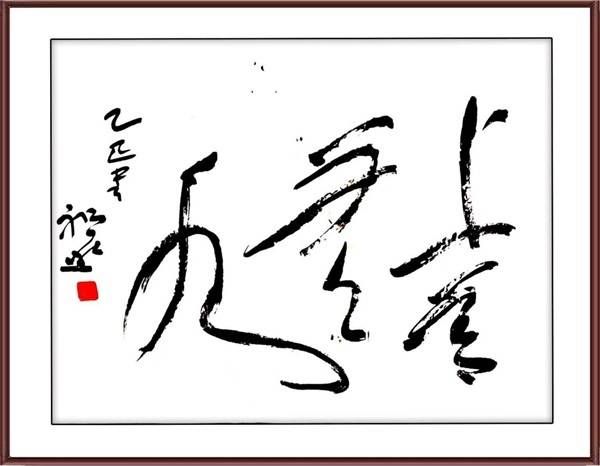 上善
若
水
乙巳